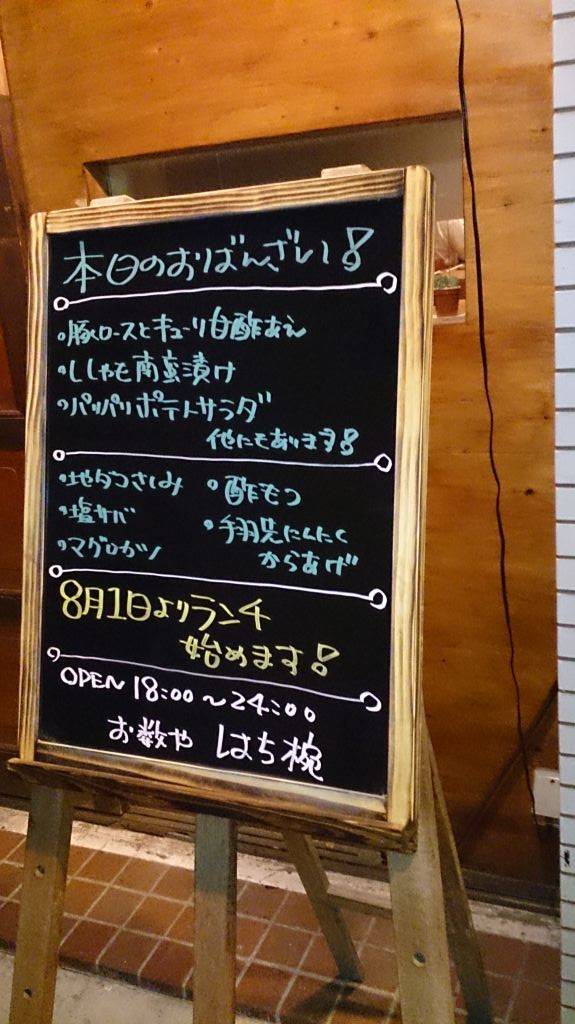 本日のおばんざい!
豚ロースとキューリ白酢あえ
ししゃも南蛮漬け
パリパリポテトサラダ
他にもあります!
地ダコさしみ
塩サバ
マグロカツ
酢もつ
手羽先にんにく
からあげ
8月1日よりランチ
始めます!
OPEN 18:00〜24:00
お数や はち椀